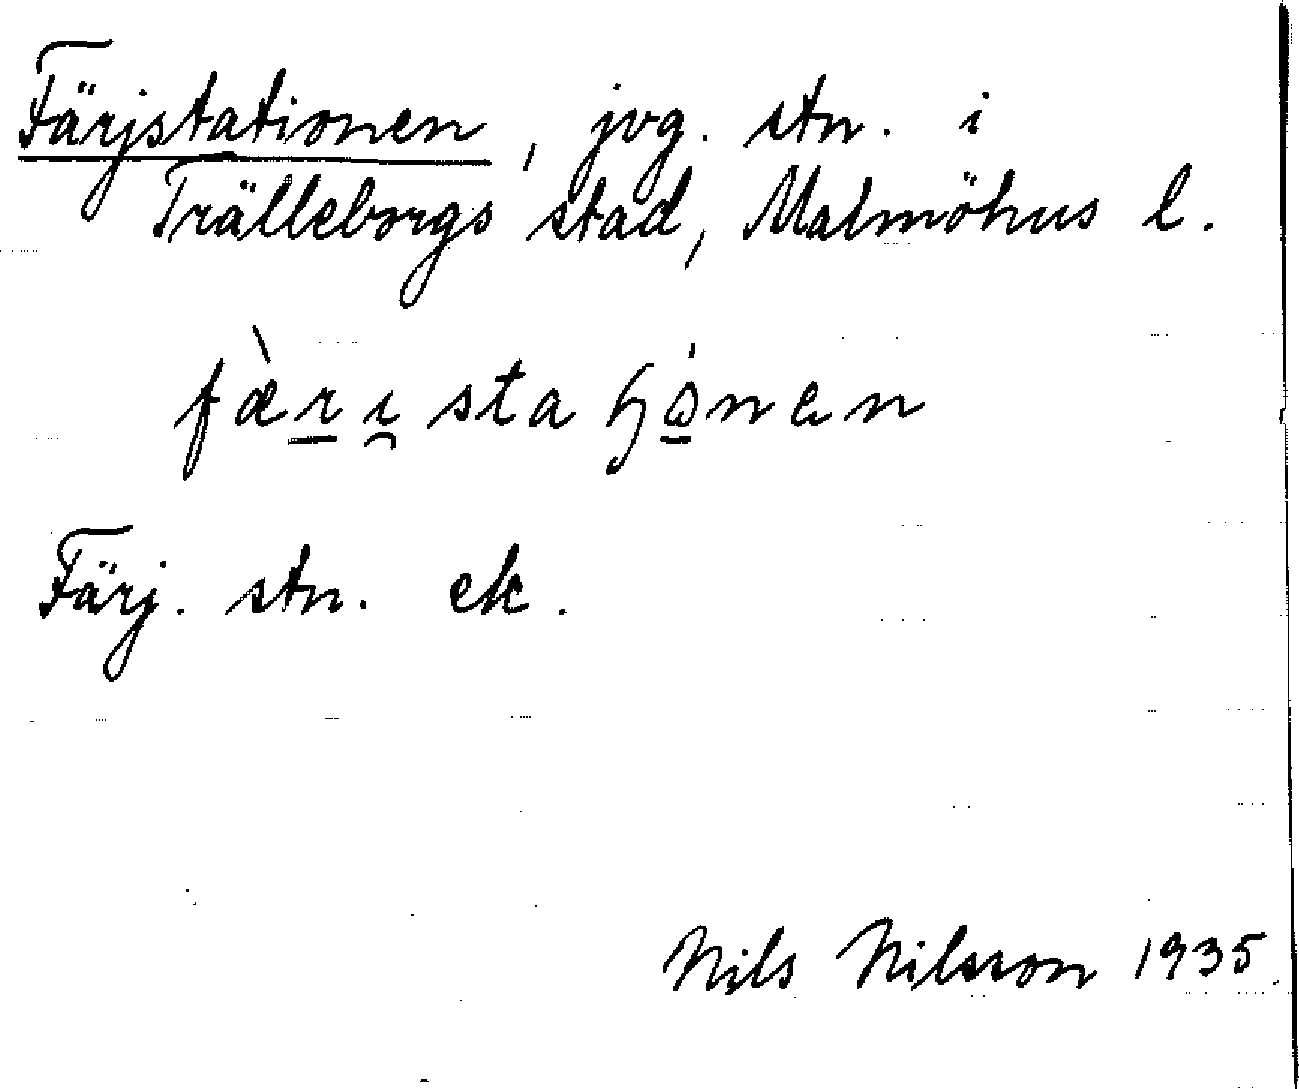 Färjstationen, jvg. stn. i
Trälleborgs stad, Malmöhus l.
fæ̀r̠ı̯staɧǫ́nen
Färj. stn. ek.
Nils Nilsson 1935